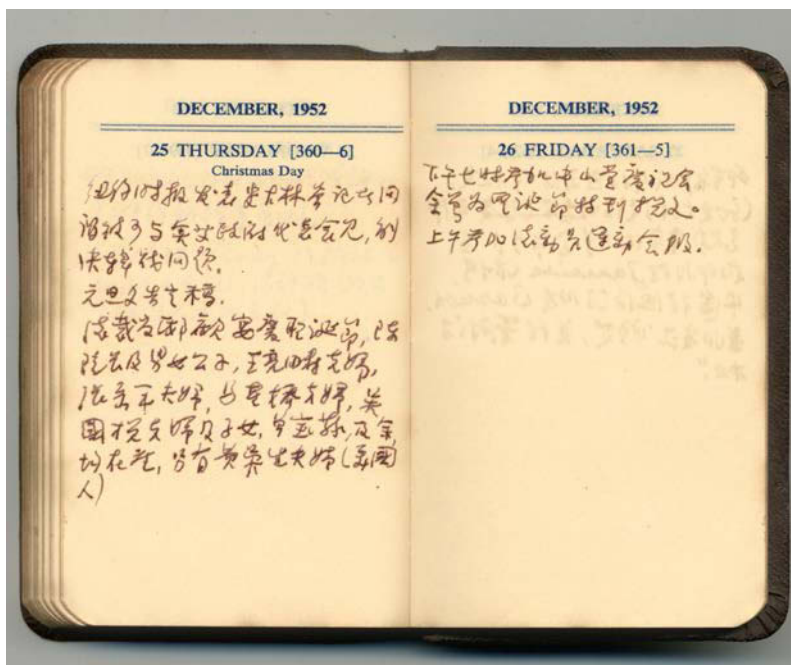 DECEMBER, 1952
25 THURSDAY [360—6]
Christmas Day
纽约时报发表史太林答记者问
谓彼可与美艾政府代表会见，解
决韩战问题。
元旦文告定稿。
总裁官邸欢宴庆耶诞节，陈
院长及男女公子，王亮畴夫婦，
张岳军夫婦，夫婦，吴
國桢夫婦及子女，及余
均在座，另有夫婦（美國
人）
DECEMBER, 1952
26 FRIDAY [361—5]
下午七时参加中山堂庆祝会
余曾为耶诞節特刊撰文。
上午参加总动员运动会报。